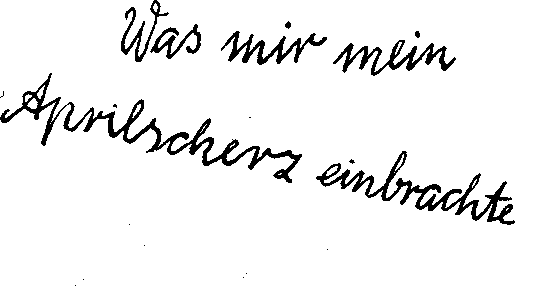 Was mir mein
Aprilscherz einbrachte